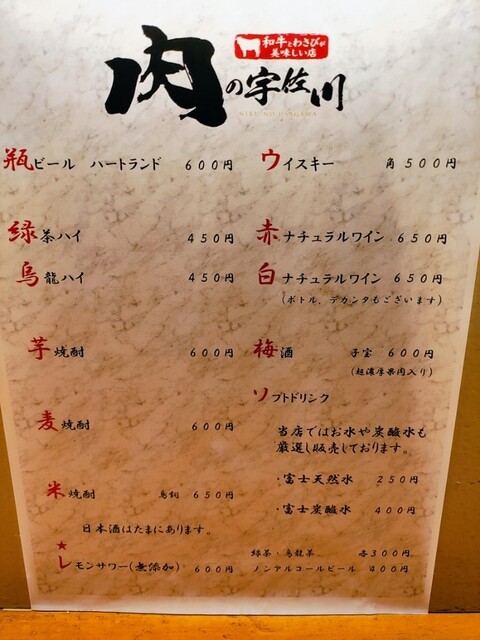 和牛とわさびが
美味しい店
肉の宇佐川
NIKU NO USAGAWA
瓶ビール ハートランド 600円
緑茶ハイ 450円
烏龍ハイ 450円
芋焼酎 600円
麦焼酎 600円
米焼酎 鳥飼 650円
日本酒はたまにあります。
★
レモンサワー(無添加) 600円
ウイスキー 角 500円
赤ナチュラルワイン 650円
白ナチュラルワイン 650円
(ボトル、デカンタもございます)
梅酒 子宝 600円
(超濃厚果肉入り)
ソフトドリンク
当店ではお水や炭酸水も
厳選し販売しております。
・富士天然水 250円
・富士炭酸水 400円
緑茶・烏龍茶 各300円
ノンアルコールビール 400円